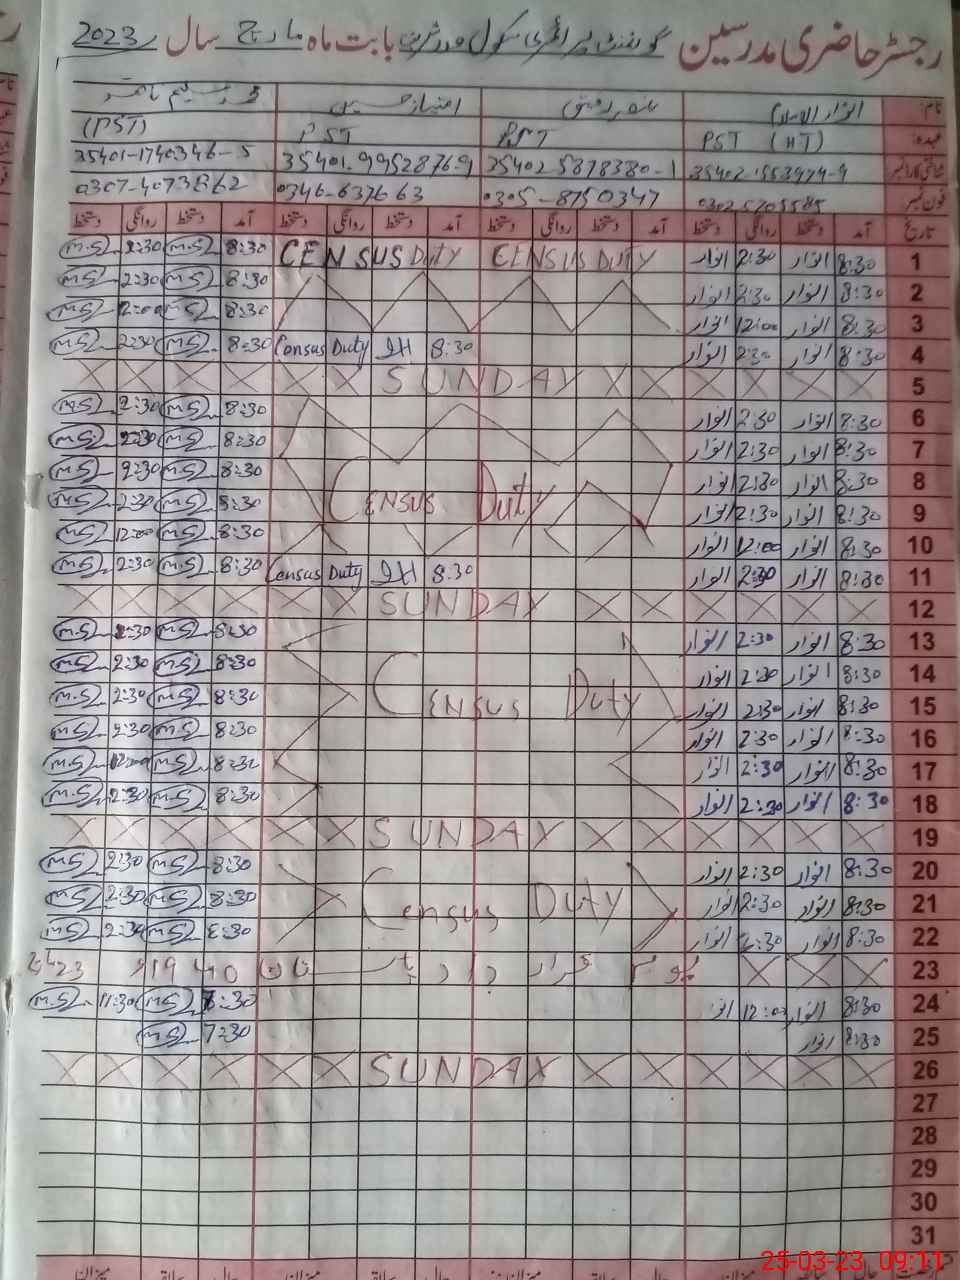 رجسٹر حاضری مدرسین گورنمنٹ پرائمری سکول بابت ماہ مارچ سال 2023
نام: انوار الاسلام امتیاز حسین
عہدہ PST (HT) PST PST (PST)
شناختی کارڈ نمبر 35402-5878380-1 35401-9952876-9 35401-1740346-5
فون نمبر 0305-8750347 0346-637663
تاریخ آمد دستخط روانگی دستخط آمد دستخط روانگی دستخط آمد دستخط روانگی دستخط آمد دستخط روانگی دستخط
1 8:30 انوار 2:30 انوار CENSUS DUTY CENSUS Duty 8:30 M.S 2:30 M.S
2 8:30 انوار 2:30 انوار 8:30 M.S 2:30 M.S
3 8:30 انوار 12:00 انوار 8:30 M.S 12:00 M.S
4 8:30 انوار 2:30 انوار 8:30 IH Census Duty 8:30 M.S 2:30 M.S
5 SUNDAY
6 8:30 انوار 2:30 انوار 8:30 M.S 2:30 M.S
7 8:30 انوار 2:30 انوار 8:30 M.S 2:30 M.S
8 8:30 انوار 2:30 انوار 8:30 M.S 2:30 M.S
9 8:30 انوار 2:30 انوار Census Duty 8:30 M.S 2:30 M.S
10 8:30 انوار 12:00 انوار 8:30 M.S 12:00 M.S
11 8:30 انوار 2:30 انوار 8:30 IH Census Duty 8:30 M.S 2:30 M.S
12 SUNDAY
13 8:30 انوار 2:30 انوار 8:30 M.S 2:30 M.S
14 8:30 انوار 2:30 انوار 8:30 M.S 2:30 M.S
15 8:30 انوار 2:30 انوار Census Duty 8:30 M.S 2:30 M.S
16 8:30 انوار 2:30 انوار 8:30 M.S 2:30 M.S
17 8:30 انوار 2:30 انوار 8:30 M.S 12:00 M.S
18 8:30 انوار 2:30 انوار 8:30 M.S 2:30 M.S
19 SUNDAY
20 8:30 انوار 2:30 انوار 8:30 M.S 2:30 M.S
21 8:30 انوار 2:30 انوار Census Duty 8:30 M.S 2:30 M.S
22 8:30 انوار 2:30 انوار 8:30 M.S 2:30 M.S
23 یوم قرار داد پاکستان 1940
24 8:30 انوار 12:00 8:30 M.S 11:30 M.S
25 8:30 انوار 7:30 M.S
26 SUNDAY
27
28
29
30
31
میزان میزان
25-03-23 09:11